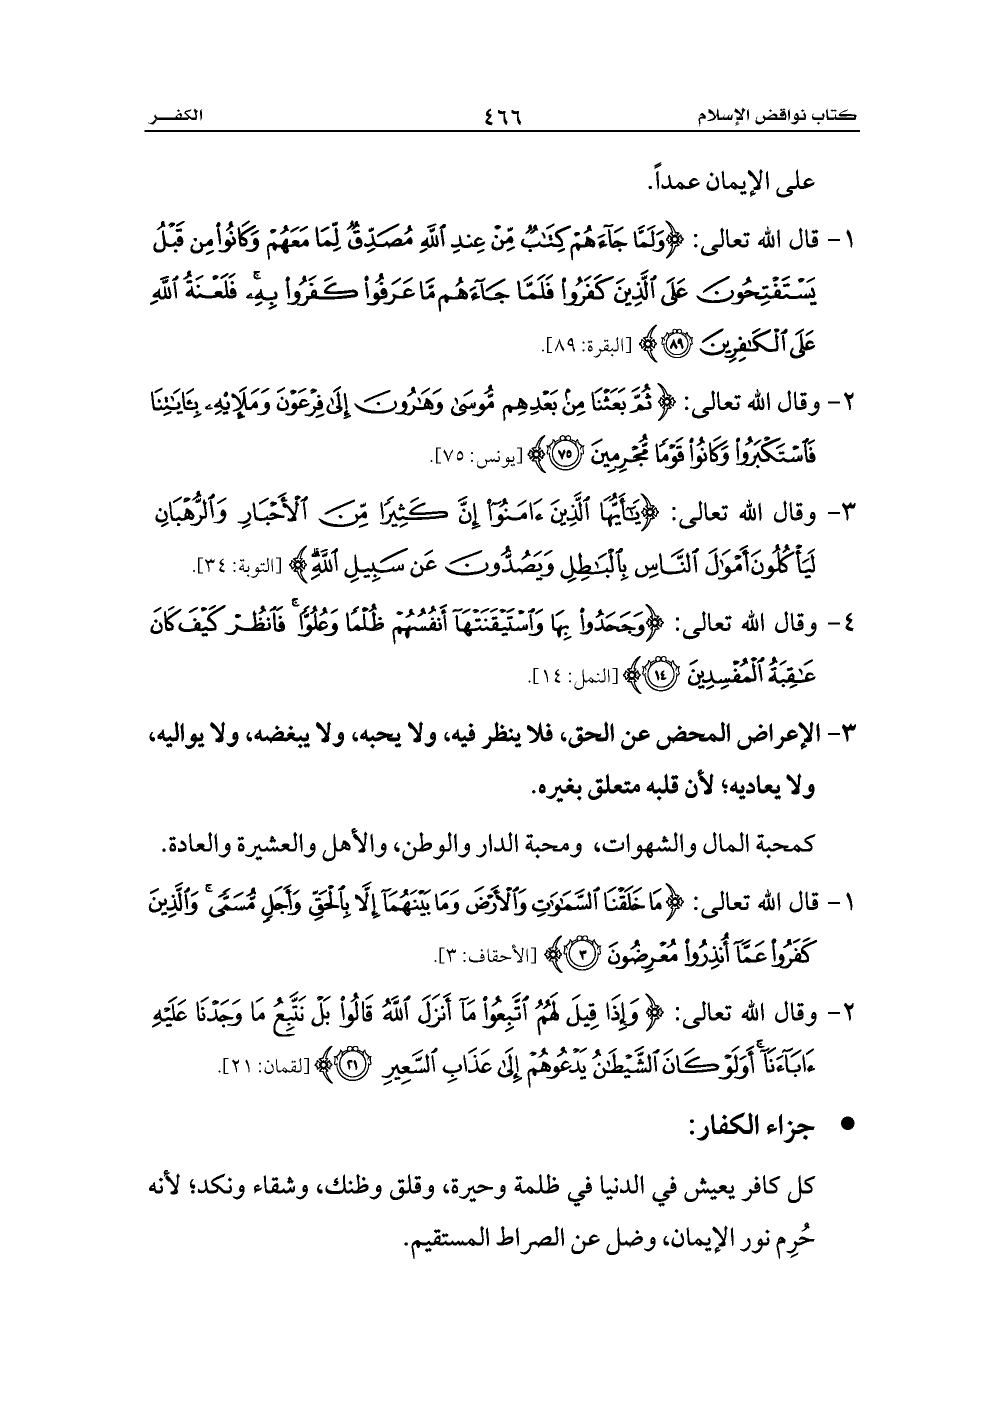 كتاب نواقض الإسلام ٤٦٦ الكفــر
على الإيمان عمداً.
١- قال الله تعالى: ﴿وَلَمَّا جَآءَهُمْ كِتَٰبٌ مِّنْ عِندِ ٱللَّهِ مُصَدِّقٌ لِّمَا مَعَهُمْ وَكَانُوا۟ مِن قَبْلُ
يَسْتَفْتِحُونَ عَلَى ٱلَّذِينَ كَفَرُوا۟ فَلَمَّا جَآءَهُم مَّا عَرَفُوا۟ كَفَرُوا۟ بِهِۦ ۚ فَلَعْنَةُ ٱللَّهِ
عَلَى ٱلْكَٰفِرِينَ ٨٩﴾ [البقرة: ٨٩].
٢- وقال الله تعالى: ﴿ثُمَّ بَعَثْنَا مِنۢ بَعْدِهِم مُّوسَىٰ وَهَٰرُونَ إِلَىٰ فِرْعَوْنَ وَمَلَإِي۟هِۦ بِـَٔايَٰتِنَا
فَٱسْتَكْبَرُوا۟ وَكَانُوا۟ قَوْمًا مُّجْرِمِينَ ٧٥﴾ [يونس: ٧٥].
٣- وقال الله تعالى: ﴿يَٰٓأَيُّهَا ٱلَّذِينَ ءَامَنُوٓا۟ إِنَّ كَثِيرًا مِّنَ ٱلْأَحْبَارِ وَٱلرُّهْبَانِ
لَيَأْكُلُونَ أَمْوَٰلَ ٱلنَّاسِ بِٱلْبَٰطِلِ وَيَصُدُّونَ عَن سَبِيلِ ٱللَّهِ ۗ﴾ [التوبة: ٣٤].
٤- وقال الله تعالى: ﴿وَجَحَدُوا۟ بِهَا وَٱسْتَيْقَنَتْهَآ أَنفُسُهُمْ ظُلْمًا وَعُلُوًّا ۚ فَٱنظُرْ كَيْفَ كَانَ
عَٰقِبَةُ ٱلْمُفْسِدِينَ ١٤﴾ [النمل: ١٤].
٣- الإعراض المحض عن الحق، فلا ينظر فيه، ولا يحبه، ولا يبغضه، ولا يواليه،
ولا يعاديه؛ لأن قلبه متعلق بغيره.
كمحبة المال والشهوات، ومحبة الدار والوطن، والأهل والعشيرة والعادة.
١- قال الله تعالى: ﴿مَا خَلَقْنَا ٱلسَّمَٰوَٰتِ وَٱلْأَرْضَ وَمَا بَيْنَهُمَآ إِلَّا بِٱلْحَقِّ وَأَجَلٍ مُّسَمًّى ۚ وَٱلَّذِينَ
كَفَرُوا۟ عَمَّآ أُنذِرُوا۟ مُعْرِضُونَ ٣﴾ [الأحقاف: ٣].
٢- وقال الله تعالى: ﴿وَإِذَا قِيلَ لَهُمُ ٱتَّبِعُوا۟ مَآ أَنزَلَ ٱللَّهُ قَالُوا۟ بَلْ نَتَّبِعُ مَا وَجَدْنَا عَلَيْهِ
ءَابَآءَنَآ ۚ أَوَلَوْ كَانَ ٱلشَّيْطَٰنُ يَدْعُوهُمْ إِلَىٰ عَذَابِ ٱلسَّعِيرِ ٢١﴾ [لقمان: ٢١].
● جزاء الكفار:
كل كافر يعيش في الدنيا في ظلمة وحيرة، وقلق وظنك، وشقاء ونكد؛ لأنه
حُرِم نور الإيمان، وضل عن الصراط المستقيم.